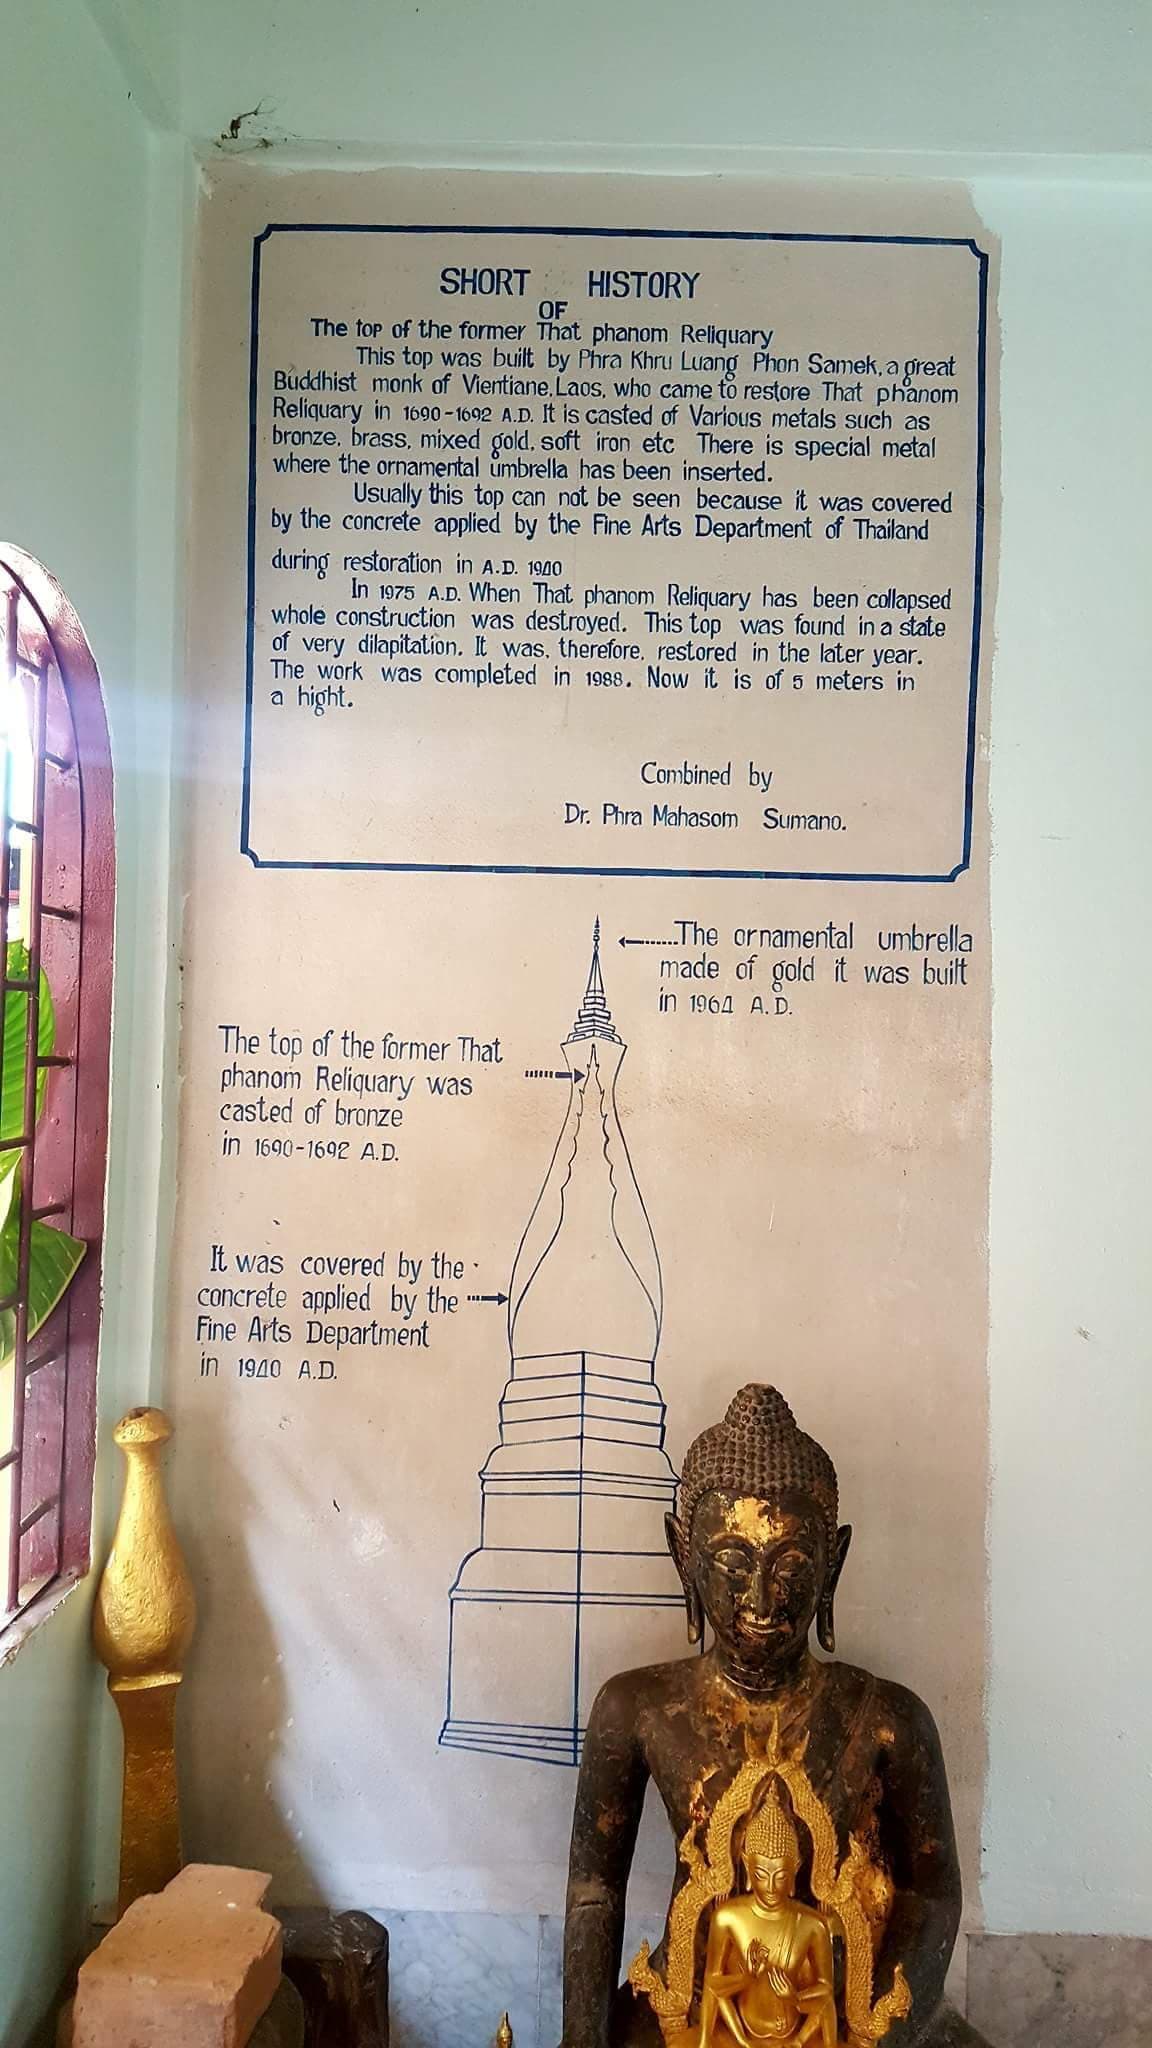 SHORT HISTORY
OF
The top of the former That phanom Reliquary
This top was built by Phra Khru Luang Phon Samek, a great
Buddhist monk of Vientiane, Laos, who came to restore That phanom
Reliquary in 1690-1692 A.D. It is casted of Various metals such as
bronze, brass, mixed gold, soft iron etc There is special metal
where the ornamental umbrella has been inserted.
Usually this top can not be seen because it was covered
by the concrete applied by the Fine Arts Department of Thailand
during restoration in A.D. 1940
In 1975 A.D. When That phanom Reliquary has been collapsed
whole construction was destroyed. This top was found in a state
of very dilapitation. It was, therefore, restored in the later year.
The work was completed in 1988. Now it is of 5 meters in
a hight.
Combined by
Dr. Phra Mahasom Sumano.
The ornamental umbrella
made of gold it was built
in 1964 A.D.
The top of the former That
phanom Reliquary was
casted of bronze
in 1690-1692 A.D.
It was covered by the
concrete applied by the
Fine Arts Department
in 1940 A.D.